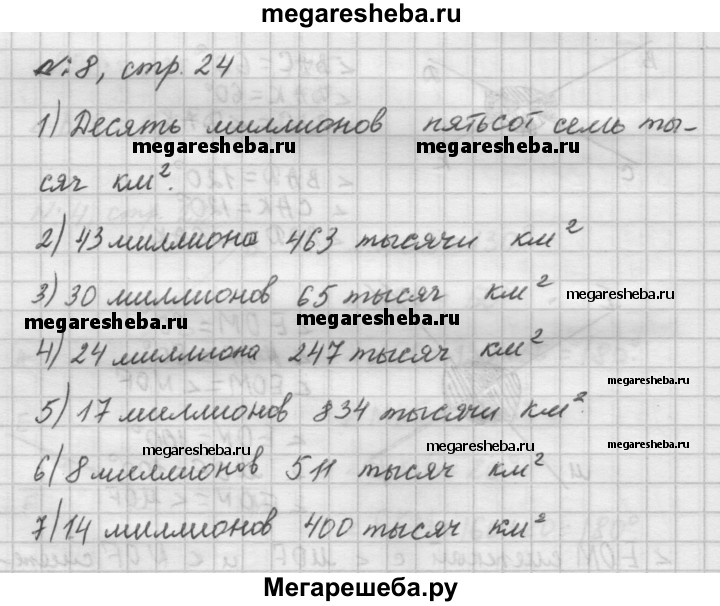 megaresheba.ru
№ 8, стр. 24
1) Десять миллионов пятьсот семь ты-
megaresheba.ru megaresheba.ru
сяч км².
2) 43 миллиона 463 тысячи км²
3) 30 миллионов 65 тысяч км²
megaresheba.ru
megaresheba.ru megaresheba.ru
4) 24 миллиона 247 тысяч км²
megaresheba.ru
5) 17 миллионов 834 тысячи км².
megaresheba.ru megaresheba.ru megaresheba.ru
6) 8 миллионов 511 тысяч км²
megaresheba.ru
7) 14 миллионов 400 тысяч км²
Мегарешеба.ру